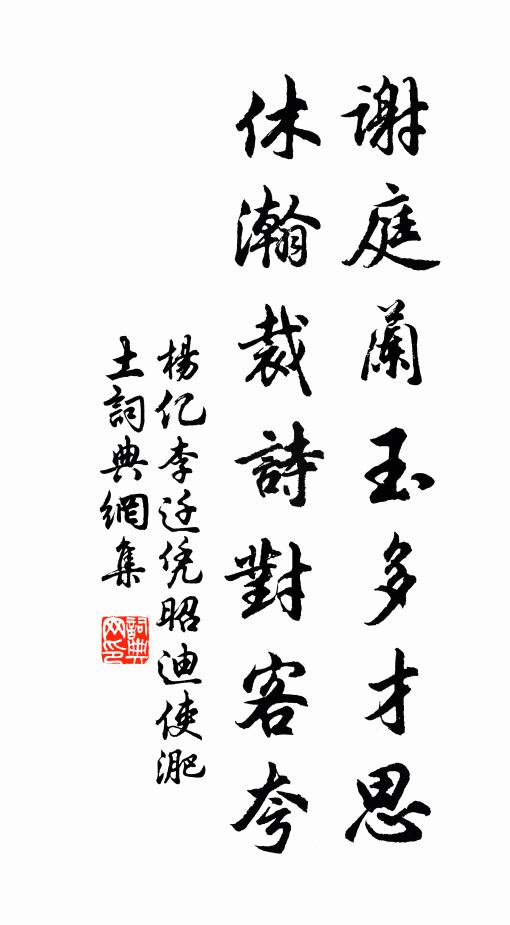 謝庭蘭玉多才思
休瀚裁詩對客夸
楊亿李迁凭昭迪使淝
土詞典網集
詞典
网印